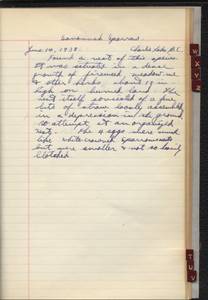 Savannah Sparrow
June 14, 1938. Charlie Lake, B.C.
Found a nest of this species.
It was situated in a dense
growth of fireweed, meadow rue
& other herbs, about 18 in
high on burned land. The
nest itself consisted of a few
bits of straw loosely assembled
in a depression in the ground
no attempt at an organized
nest. The 4 eggs were much
like white-crowned sparrows eggs
but were smaller & not so heavily
blotched.
W
X
Y
Z
T
U
V